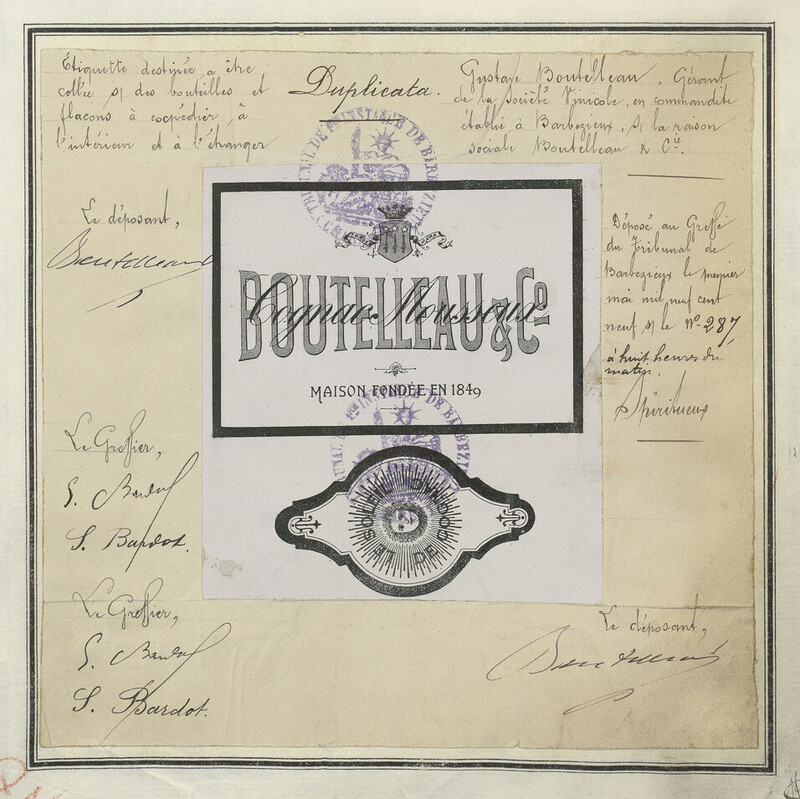 Etiquette destinée a être
collée s/ des bouteilles et
flacons à expédier, à
l'intérieur et à l'étranger
Duplicata.
Gustave Boutelleau, Gérant
de la société Vinicole, en commandite
établie à Barbezieux, s/ la raison
sociale Boutelleau & Cie.
TRIBUNAL DE 1re INSTANCE DE BARBEZIEUX
Le déposant,
Boutelleau
BOUTELLEAU & Co
Cognac Mousseux
MAISON FONDÉE EN 1849
Déposé au Greffe
du Tribunal de
Barbezieux le premier
mai mil neuf cent
neuf s/ le No 287
à huit heures du
matin.
Spiritueux
TRIBUNAL DE 1re INSTANCE DE BARBEZIEUX
LE SOLEIL D'OR
Le Greffier,
S. Bardot
S. Bardot.
Le Greffier,
S. Bardot
S. Bardot.
Le déposant,
Boutelleau